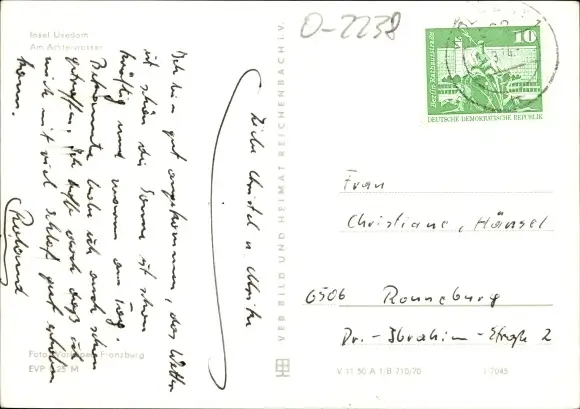 Insel Usedom
Am Achterwasser
O-2238
10
Berlin, Rathausstraße
DEUTSCHE DEMOKRATISCHE REPUBLIK
Liebe Christel u.
Ich bin gut angekommen, das Wetter
ist schön die Sonne ist schon
kräftig und warm am Tag.
Bekannte habe ich auch schon
getroffen. Ich hoffe doch daß ich
mich mit viel Schlaf gut erholen
kann.
Frau
Christiane, Hänsel
6506 Ronneburg
Dr.-Ibrahim-Straße 2
VEB BILD UND HEIMAT REICHENBACH i.V.
Foto: Worlitzer, Franzburg
EVP 0,25 M
V 11 50 A 1/B 710/70